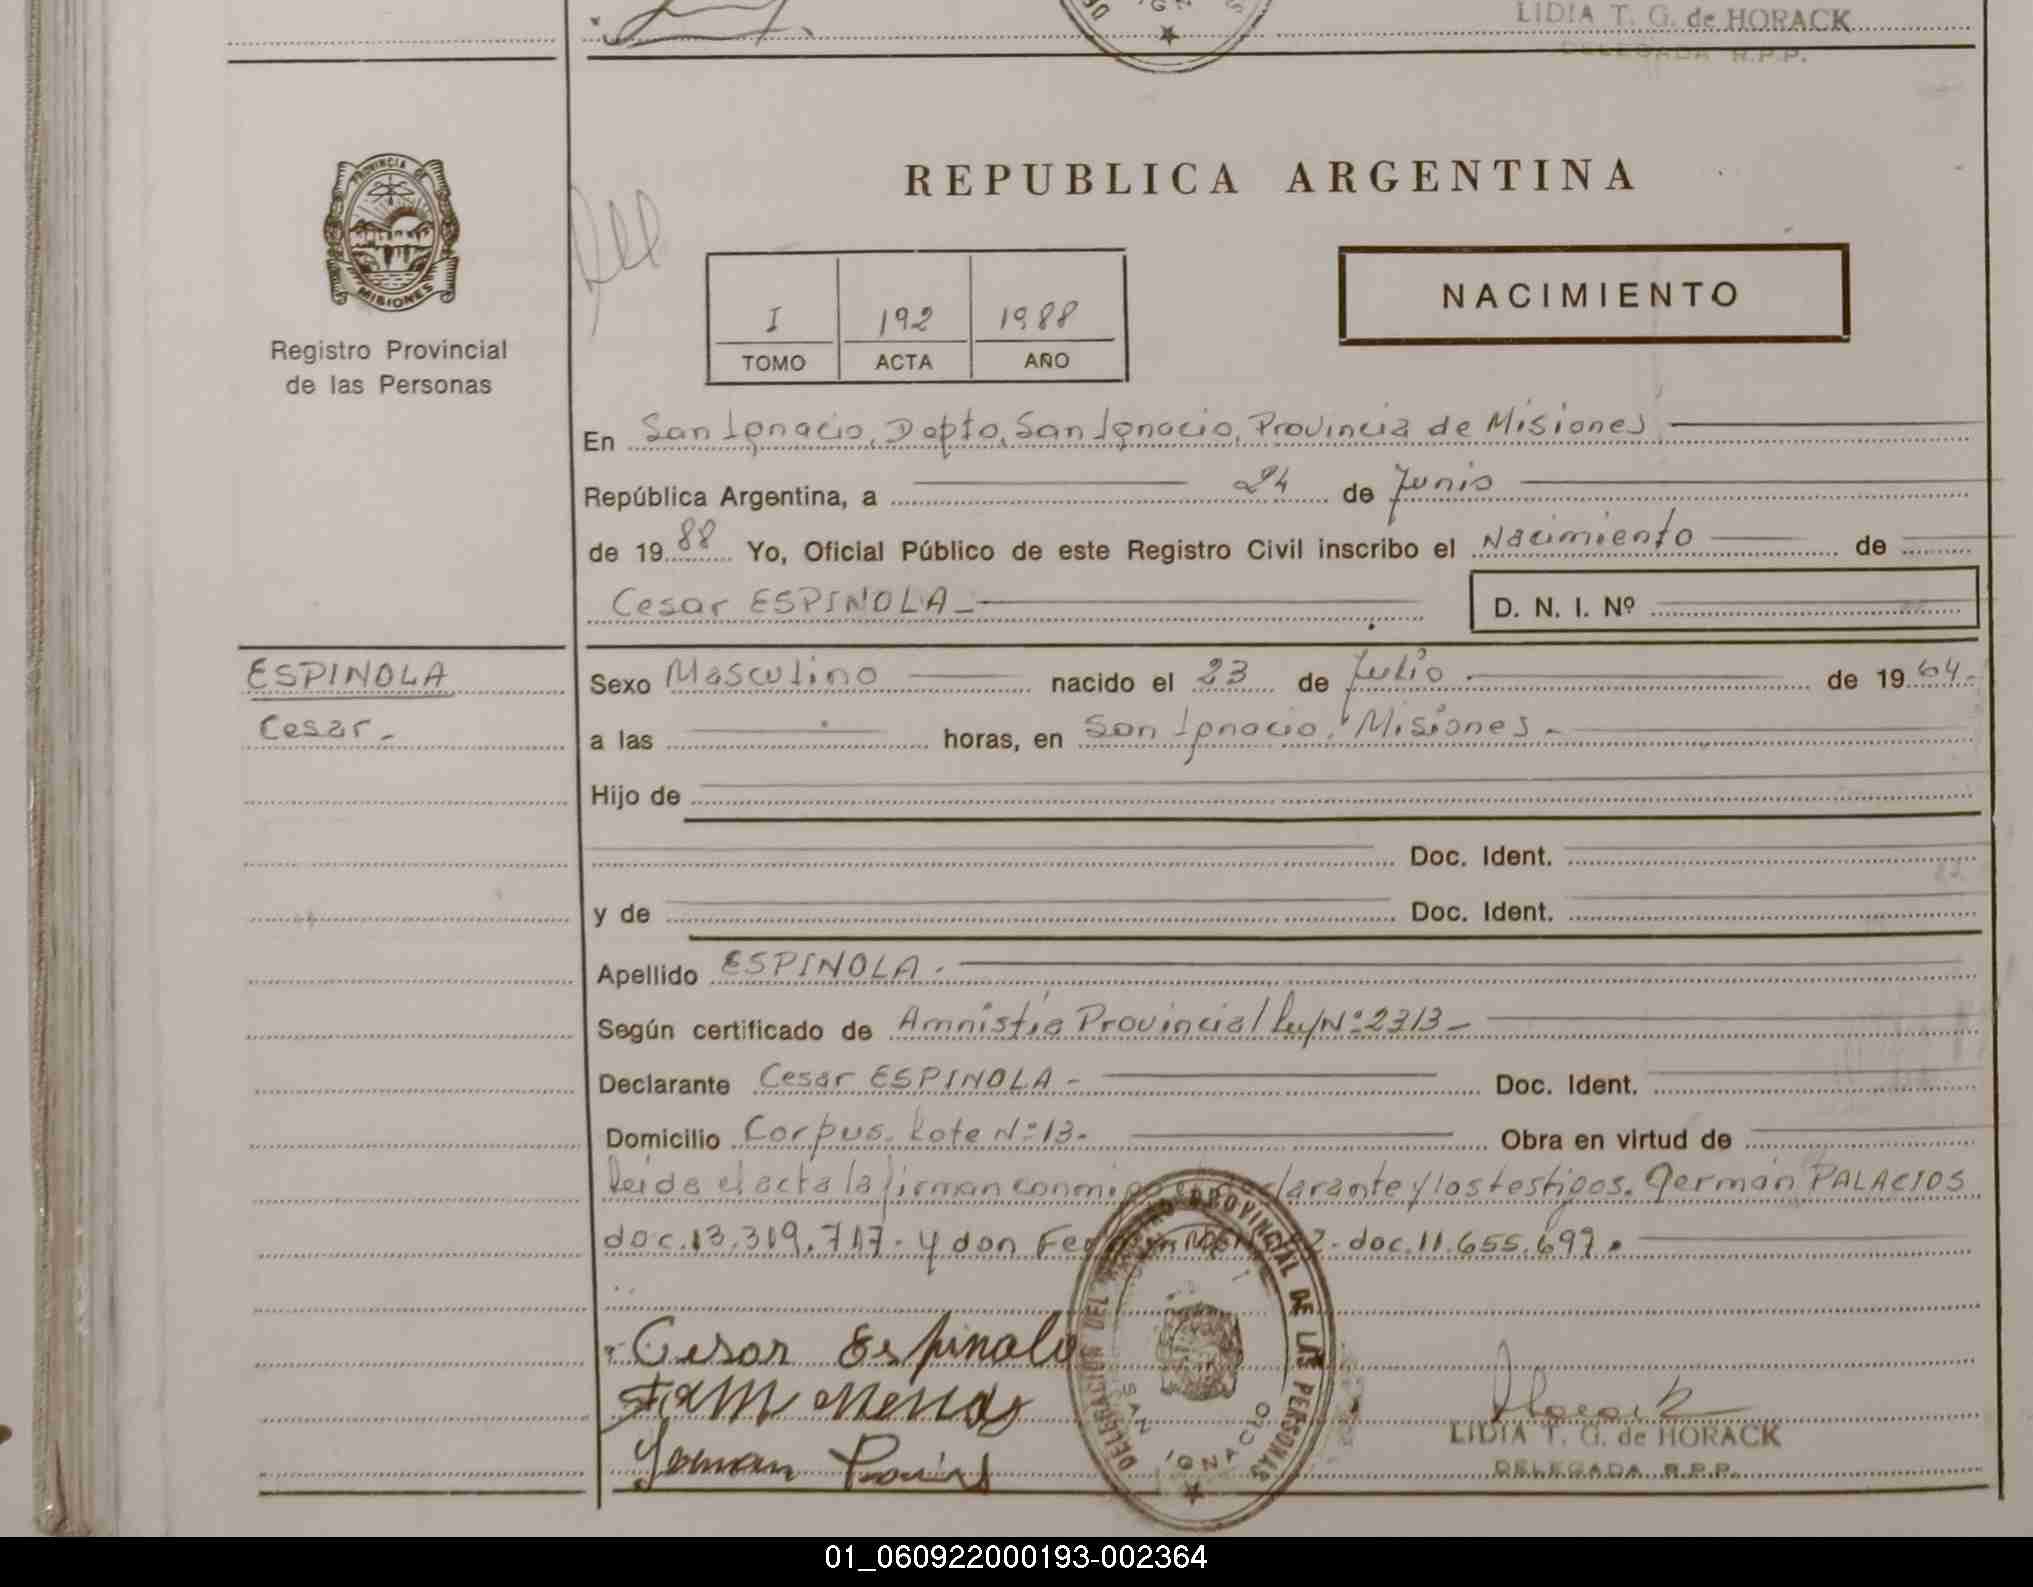 LIDIA T. G. de HORACK
DELEGADA R.P.P.
PROVINCIA DE
MISIONES
Registro Provincial
de las Personas
REPUBLICA ARGENTINA
I 192 1988
TOMO ACTA AÑO
NACIMIENTO
En San Ignacio, Dopto, San Ignacio, Provincia de Misiones
República Argentina, a 24 de Junio
de 1988 Yo, Oficial Público de este Registro Civil inscribo el Nacimiento de
Cesar ESPINOLA - D. N. I. Nº
ESPINOLA
Cesar -
Sexo Masculino nacido el 23 de Julio de 1964.
a las horas, en San Ignacio, Misiones -
Hijo de
Doc. Ident.
y de Doc. Ident.
Apellido ESPINOLA.
Según certificado de Amnistía Provincial Ley Nº 2313 -
Declarante Cesar ESPINOLA - Doc. Ident.
Domicilio Corpus. Lote Nº 13 - Obra en virtud de
Leida el acta la firman conmigo larante y los testigos. Germán PALACIOS
doc. 13.319.717 - y don doc. 11.655.697.
Cesar Espinola
German
LIDIA T. G. de HORACK
DELEGADA R.P.P.
DELEGACION DEL REGISTRO PROVINCIAL DE LAS PERSONAS
SAN IGNACIO
01_060922000193-002364